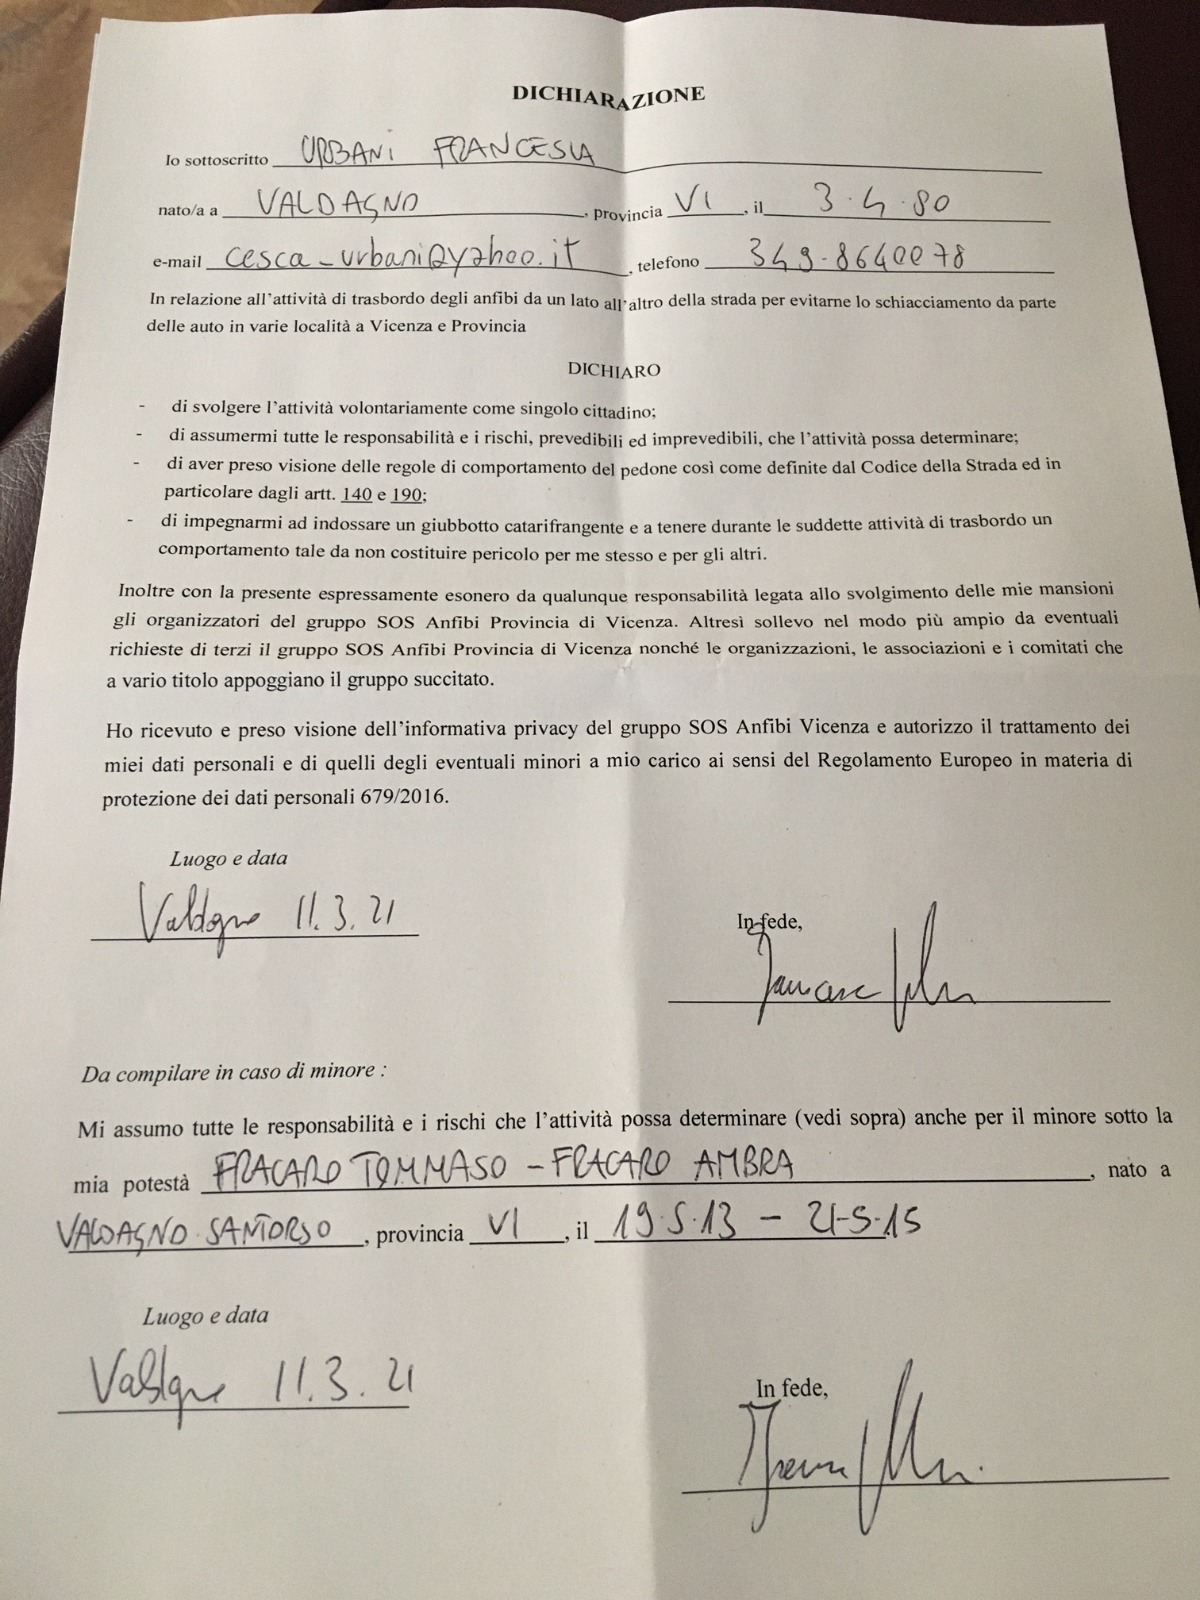 DICHIARAZIONE
Io sottoscritto URBANI FRANCESCA
nato/a a VALDAGNO, provincia VI, il 3.4.80
e-mail cesca_urbani@yahoo.it, telefono 349-8640078
In relazione all'attività di trasbordo degli anfibi da un lato all'altro della strada per evitarne lo schiacciamento da parte
delle auto in varie località a Vicenza e Provincia
DICHIARO
- di svolgere l'attività volontariamente come singolo cittadino;
- di assumermi tutte le responsabilità e i rischi, prevedibili ed imprevedibili, che l'attività possa determinare;
- di aver preso visione delle regole di comportamento del pedone così come definite dal Codice della Strada ed in
particolare dagli artt. 140 e 190;
- di impegnarmi ad indossare un giubbotto catarifrangente e a tenere durante le suddette attività di trasbordo un
comportamento tale da non costituire pericolo per me stesso e per gli altri.
Inoltre con la presente espressamente esonero da qualunque responsabilità legata allo svolgimento delle mie mansioni
gli organizzatori del gruppo SOS Anfibi Provincia di Vicenza. Altresì sollevo nel modo più ampio da eventuali
richieste di terzi il gruppo SOS Anfibi Provincia di Vicenza nonché le organizzazioni, le associazioni e i comitati che
a vario titolo appoggiano il gruppo succitato.
Ho ricevuto e preso visione dell'informativa privacy del gruppo SOS Anfibi Vicenza e autorizzo il trattamento dei
miei dati personali e di quelli degli eventuali minori a mio carico ai sensi del Regolamento Europeo in materia di
protezione dei dati personali 679/2016.
Luogo e data
Valdagno 11.3.21
In fede,
Da compilare in caso di minore :
Mi assumo tutte le responsabilità e i rischi che l'attività possa determinare (vedi sopra) anche per il minore sotto la
mia potestà FRACARO TOMMASO - FRACARO AMBRA, nato a
VALDAGNO SANTORSO, provincia VI, il 19.5.13 - 21-5-15
Luogo e data
Valdagno 11.3.21
In fede,